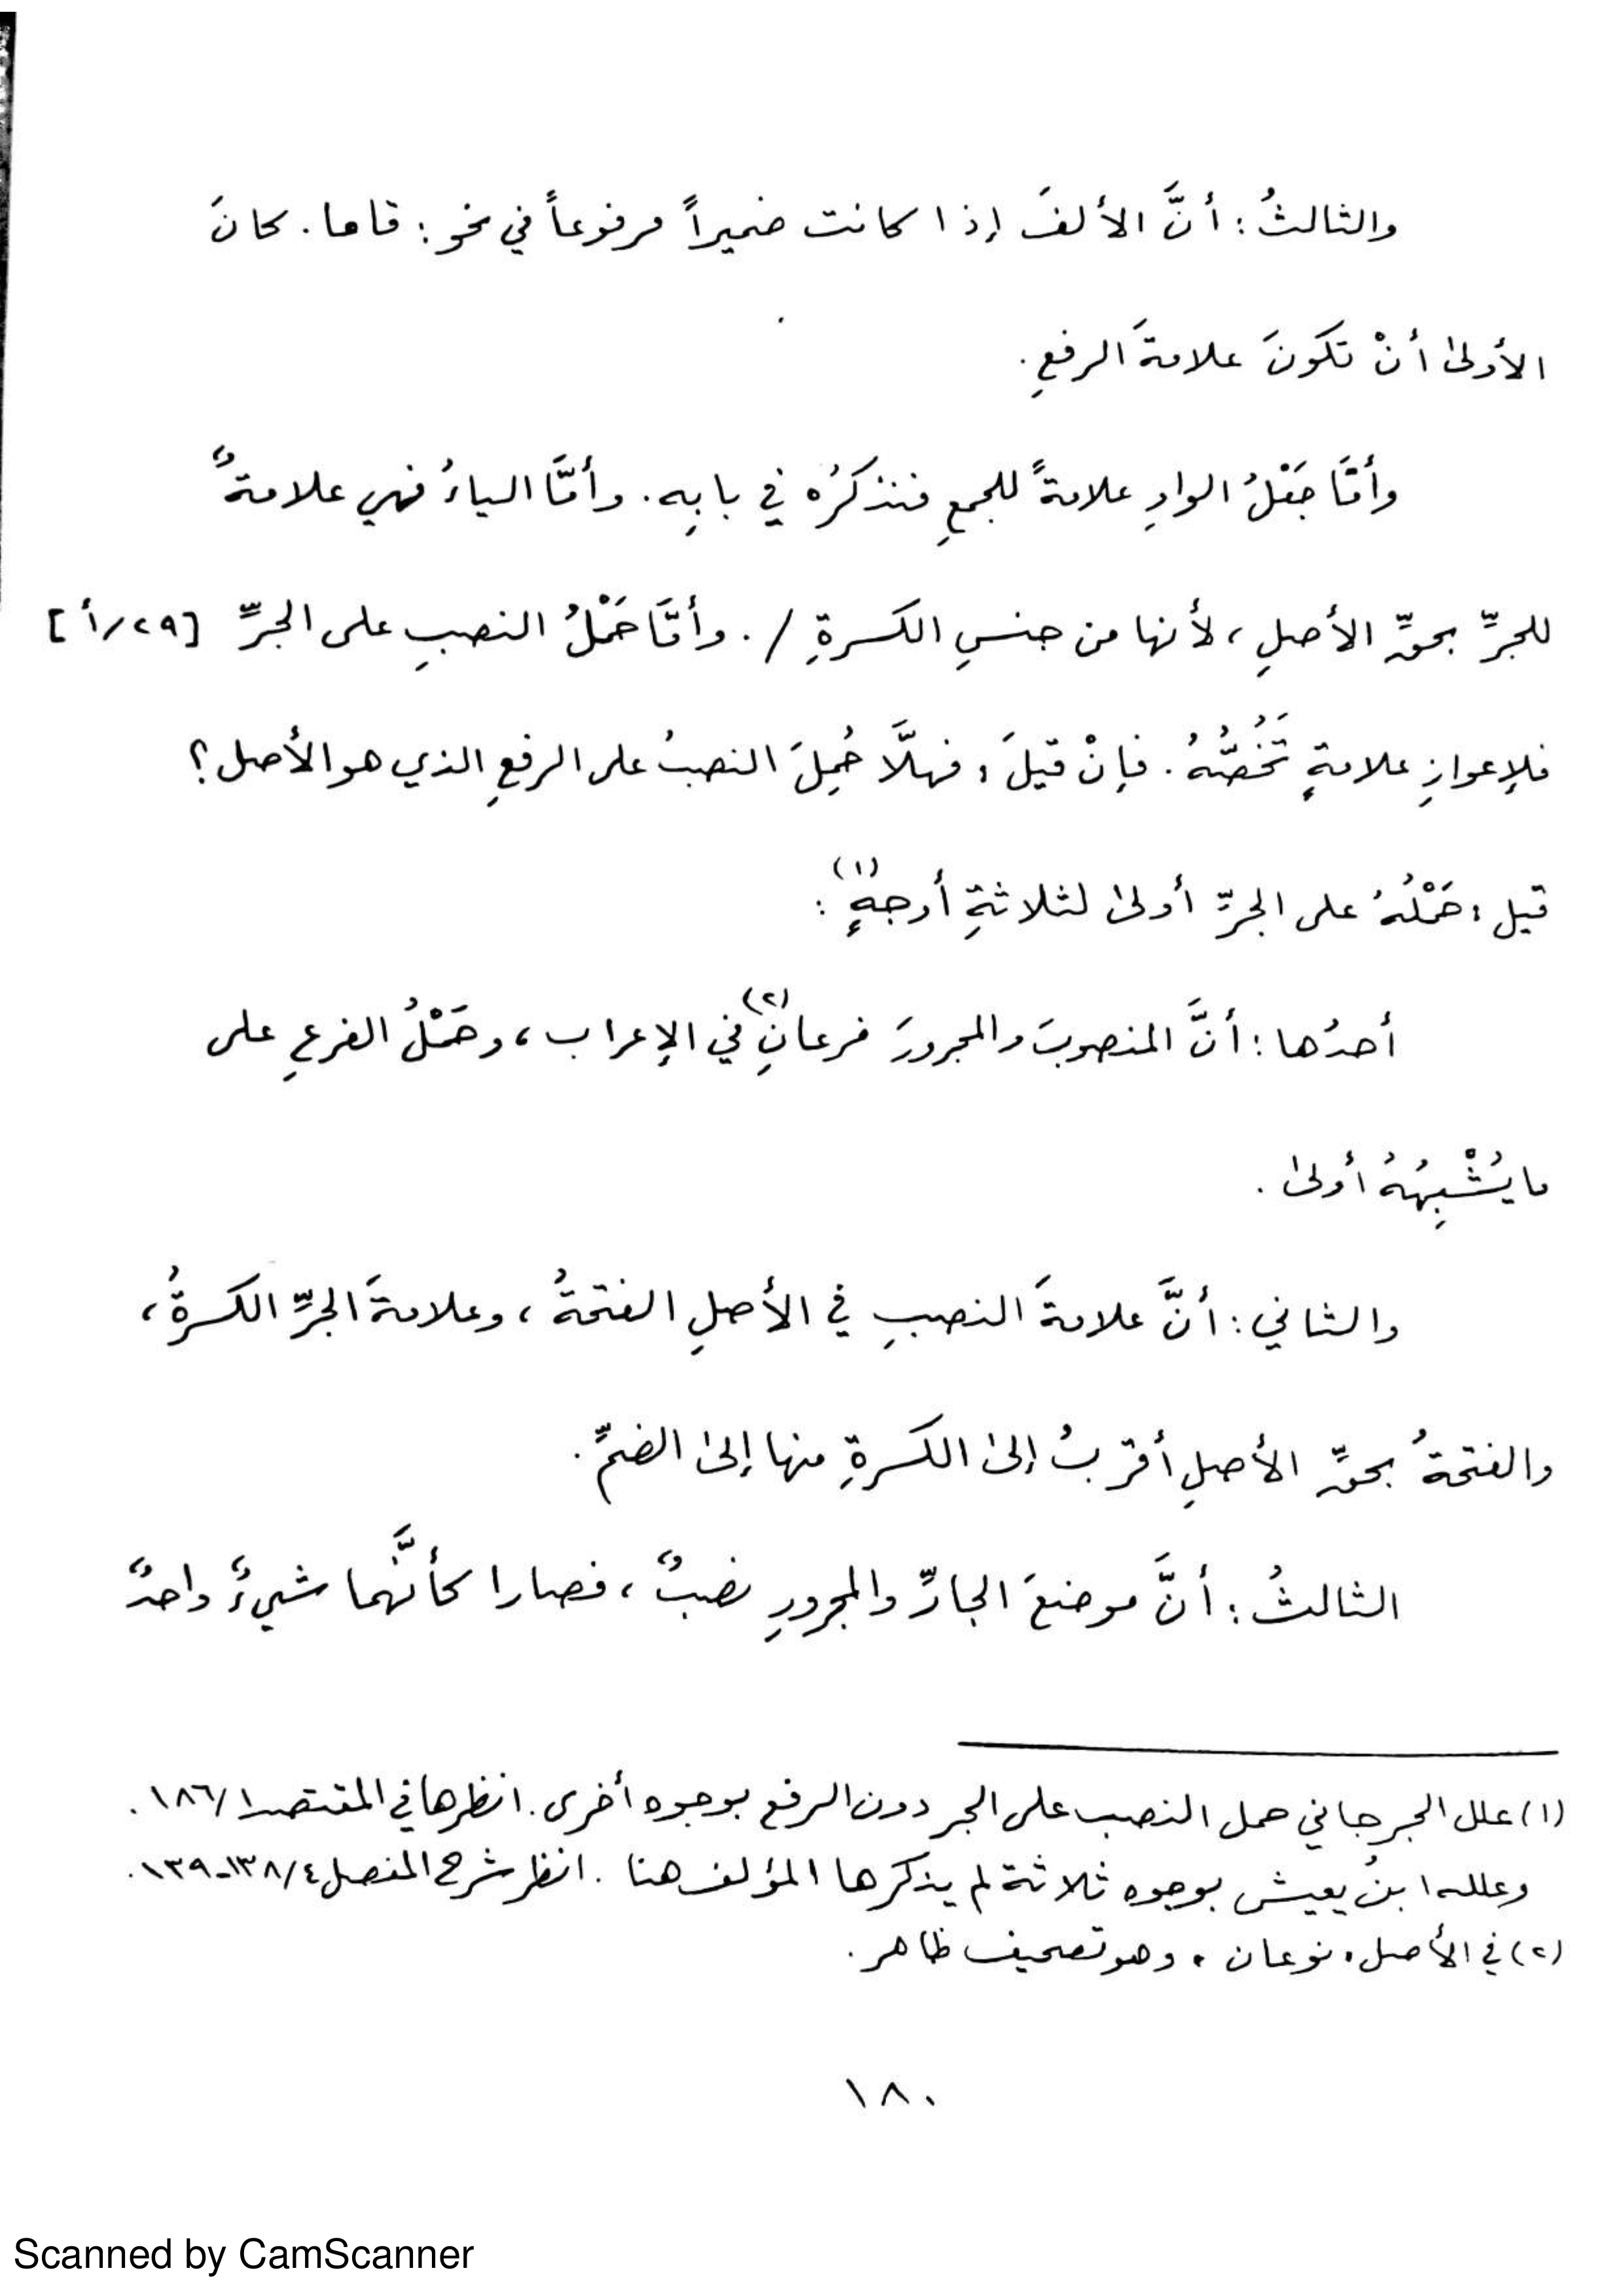 والثالثُ : أنَّ الألفَ إذا كانت ضميراً مرفوعاً في نحو : قاما . كانَ
الأولىٰ أنْ تكونَ علامةَ الرفعِ .
وأمَّا جَعْلُ الواوِ علامةً للجمعِ فنذكرُه في بابِه . وأمَّا الياءُ فهي علامةٌ
للجرِّ بحقِّ الأصلِ ، لأنها من جنسِ الكسرةِ / . وأمَّا حَمْلُ النصبِ على الجرِّ [٢٩/أ]
فلإعوازِ علامةٍ تَخُصُّهُ . فإنْ قيلَ : فهلَّا حُمِلَ النصبُ على الرفعِ الذي هو الأصل ؟
قيل : حَمْلُهُ على الجرِّ أولىٰ لثلاثةِ أوجهٍ (١) :
أحدُها : أنَّ المنصوبَ والمجرورَ فرعانِ (٢) في الإعراب ، وحَمْلُ الفرعِ على
ما يُشْبِهُهُ أولىٰ .
والثاني : أنَّ علامةَ النصبِ في الأصلِ الفتحةُ ، وعلامةَ الجرِّ الكسرةُ ،
والفتحةُ بحقِّ الأصلِ أقربُ إلىٰ الكسرةِ منها إلىٰ الضمِّ .
الثالثُ : أنَّ موضعَ الجارِّ والمجرورِ نصبٌ ، فصارا كأنَّهما شيءٌ واحدٌ
(١) علل الجرجاني حمل النصب على الجر دون الرفع بوجوه أخرى . انظرها في المقتصد ١/١٨٦ .
وعلله ابنُ يعيش بوجوه ثلاثة لم يذكرها المؤلف هنا . انظر شرح المفصل ٤/١٣٨-١٣٩ .
(٢) في الأصل : نوعان ، وهو تصحيف ظاهر .
١٨٠
Scanned by CamScanner